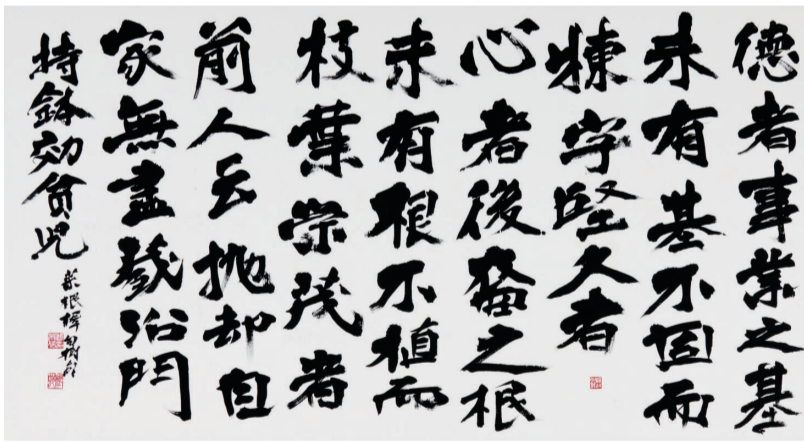 德者事業之基
未有基不固而
棟宇堅久者
心者後裔之根
未有根不植而
枝葉榮茂者
前人云抛却自
家無盡藏沿門
持鉢効貧児
菜根譚